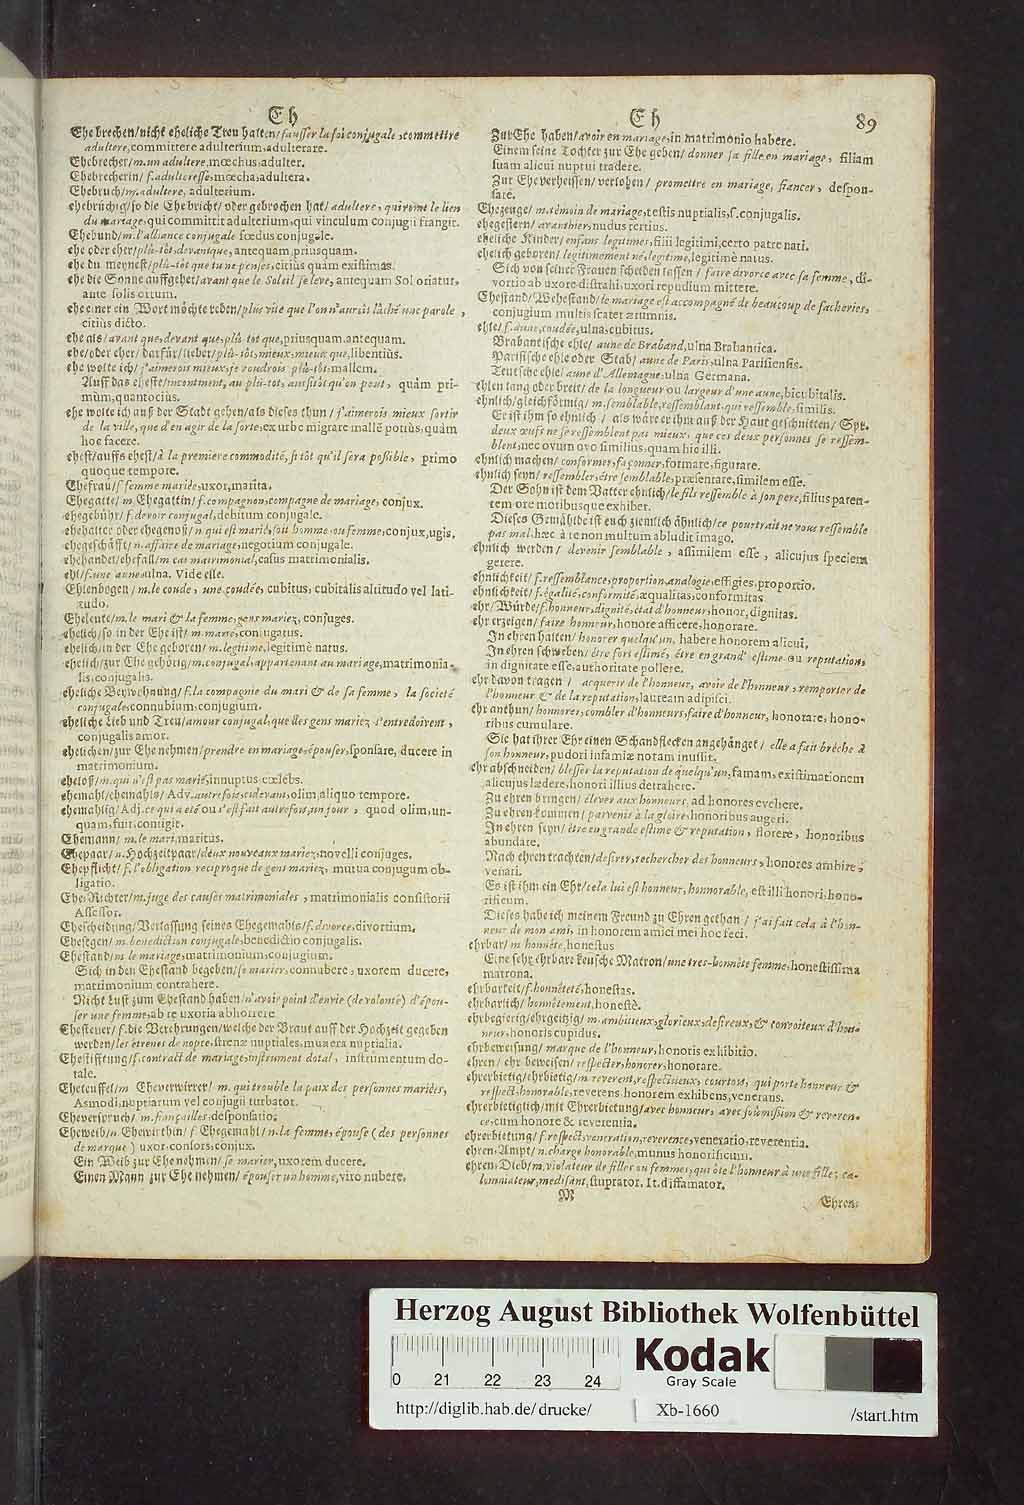 Eh
Ehe brechen/nicht eheliche Treu halten/fausser la foi conjugale, commettre
adultere, committere adulterium, adulterare.
Ehebrecher/m. un adultere, mœchus, adulter.
Ehebrecherin/f. adulteresse, mœcha, adultera.
Ehebruch/m. adultere, adulterium.
ehebrüchig/so die Ehe bricht/oder gebrochen hat/adultere, qui rome le lien
du mariage, qui committit adulterium, qui vinculum conjugii frangit.
Ehebund/m. l'alliance conjugale fœdus conjugale.
ehe oder eher/plû-tôt, devant que, antequam, priusquam.
ehe du meynest/plû-tôt que tu ne penses, citiùs quàm existimas.
ehe die Sonne auffgehet/avant que le Soleil se leve, antequam Sol oriatur,
ante solis ortum.
ehe einer ein Wort möchte reden/plus vite que l'on n'auroit lâché une parole,
citiùs dicto.
ehe als/avant que, devant que, plû tôt que, priusquam, antequam.
ehe/oder eher/darfür/lieber/plû-tôt, mieux, mieux que, libentiùs.
ehe wolte ich/j'aimerois mieux, je voudrois plû-tôt, mallem.
Auff das eheste/incontinent, au plû-tôt, aussitôt qu'on peut, quàm pri-
mùm, quantociùs.
ehe wolte ich auß der Stadt gehen/als dieses thun/j'aimerois mieux sortir
de la ville, que d'en agir de la sorte, ex urbe migrare mallē potiùs, quàm
hoc facere.
ehest/auffs ehest/à la premiere commodité, si tôt qu'il sera possible, primo
quoque tempore.
Ehefrau/f. femme mariée, uxor, marita.
Ehegatte/m. Ehegattin/f. compagnon, compagne de mariage, conjux.
ehegebühr/f. devoir conjugal, debitum conjugale.
ehehalter oder ehegenoß/n. qui est marié, soit homme ou femme, conjux, ugis.
ehegeschäfft/n. affaire de mariage, negotium conjugale.
ehehandel/ehefall/m. cas matrimonial, casus matrimonialis.
ehl/f. une aune, ulna. Vide elle.
Ehlenbogen/m. le coude, une coudée, cubitus, cubitalis altitudo vel lati-
tudo.
Eheleute/m. le mari & la femme, gens mariez, conjuges.
ehelich/so in der Ehe ist/m. marié, conjugatus.
ehelich/in der Ehe geboren/m. legitime, legitimè natus.
ehelich/zur Ehe gehörig/m. conjugal, appartenant au mariage, matrimonia-
lis, conjugalis.
eheliche Beywohnung/f. la compagnie du mari & de sa femme, la societé
conjugale, connubium, conjugium.
eheliche Lieb und Treu/amour conjugal, que des gens mariez s'entredoivent,
conjugalis amor.
ehelichen/zur Ehe nehmen/prendre en mariage, épouser, sponsare, ducere in
matrimonium.
eheloß/m. qui n'est pas marié, innuptus, cœlebs.
ehemahl/ehemahls/Adv. autrefois, cidevant, olim, aliquo tempore.
ehemahlig/Adj. ce qui a eté ou s'est fait autrefois, un jour, quod olim, un-
quam, fuit, contigit.
Ehemann/m. le mari, maritus.
Ehepaar/n. Hochzeitpaar/deux nouveaux mariez, novelli conjuges.
Ehepflicht/f. l'obligation reciproque de gens mariez, mutua conjugum ob-
ligatio.
Ehe-Richter/m. juge des causes matrimoniales, matrimonialis consistorii
Assessor.
Ehescheidung/Verlassung seines Ehegemahls/f. divorce, divortium.
Ehesegen/m. benediction conjugale, benedictio conjugalis.
Ehestand/m le mariage, matrimonium, conjugium.
Sich in den Ehestand begeben/se marier, connubere, uxorem ducere,
matrimonium contrahere.
Nicht Lust zum Ehestand haben/n'avoir point d'envie (de volonté) d'épou-
ser une femme, ab re uxoria abhorrere
Ehesteuer/f. die Verehrungen/welche der Braut auff der Hochzeit gegeben
werden/les étrenes de nopce, strenæ nuptiales, munera nuptialia.
Ehestifftung/f. contract de mariage, instrument dotal, instrumentum do-
tale.
Eheteuffel/m Eheverwirrer/m. qui trouble la paix des personnes mariées,
Asmodi, nuptiarum vel conjugii turbator.
Eheverspruch/m. fiançailles, desponsatio.
Eheweib/n. Ehewirthin/f. Ehegemahl/n. la femme, épouse (des personnes
de marque) uxor, consors, conjux.
Ein Weib zur Ehe nehmen/se marier, uxorem ducere.
Einen Mann zur Ehe nehmen/épouser un homme, viro nubere.
Eh 89
Zur Ehe haben/avoir en mariage, in matrimonio habere.
Einem seine Tochter zur Ehe geben/donner sa fille en mariage, filiam
suam alicui nuptui tradere.
Zur Ehe verheissen/verloben/promettre en mariage, fiancer, despon-
sare.
Ehezeuge/m. témoin de mariage, testis nuptialis, f. conjugalis.
ehegestern/avanthier, nudus tertius.
eheliche Kinder/enfans legitimes, filii legitimi, certo patre nati.
ehelich geboren/legitimement né, legitime, legitimè natus.
Sich von seiner Frauen scheiden lassen/faire divorce avec sa femme, di-
vortio ab uxore distrahi, uxori repudium mittere.
Ehestand/Wehestand/le mariage est accompagné de beaucoup de facheries,
conjugium multis scatet ærumnis.
ehle/f. aune, coudée, ulna, cubitus.
Brabantische ehle/aune de Braband, ulna Brabantica.
Parisische ehle oder Stab/aune de Paris, ulna Parisiensis.
Teutsche ehle/aune d'Allemagne, ulna Germana.
ehlen lang oder breit/de la longueur ou largeur d'une aune, bicubitalis.
ehnlich/gleichförmig/m. semblable, ressemblant, qui ressemble, similis.
Er ist ihm so ehnlich/als wäre er ihm auß der Haut geschnitten/Spr.
deux œufs ne se ressemblent pas mieux, que ces deux personnes se ressem-
blent, nec ovum ovo similius, quam hic illi.
ehnlich machen/conformer, façonner, formare, figurare.
ehnlich seyn/ressembler, être semblable, præsentare, similem esse.
Der Sohn ist dem Vatter ehnlich/le fils ressemble à son pere, filius paren-
tem ore moribusque exhibet.
Dieses Gemählde ist euch ziemlich ähnlich/ce pourtrait ne vous ressemble
pas mal, hæc à te non multum abludit imago.
ehnlich werden/devenir semblable, assimilem esse, alicujus speciem
gerere.
ehnlichkeit/f. ressemblance, proportion, analogie, effigies, proportio.
ehnlichkeit/f. égalité, conformité, æqualitas, conformitas
ehr/Würde/f. honneur, dignité, état d'honneur, honor, dignitas.
ehr erzeigen/faire honneur, honore afficere, honorare.
In ehren halten/honorer quelqu'un, habere honorem alicui,
In ehren schweben/être fort estimé, être en grand' estime ou reputation,
in dignitate esse, authoritate pollere.
ehr davon tragen/acquerir de l'honneur, avoir de l'honneur, remporter de
l'honneur & de la reputation, lauream adipisci.
ehr anthun/honnorer, combler d'honneurs, faire d'honneur, honorare, hono-
ribus cumulare.
Sie hat ihrer Ehr einen Schandflecken angehänget/elle a fait brêche à
son honneur, pudori infamiæ notam inussit.
ehr abschneiden/blesser la reputation de quelqu'un, famam, existimationem
alicujus lædere, honori illius detrahere.
Zu ehren bringen/élever aux honneurs, ad honores evehere.
Zu ehren kommen/parvenir à la gloire, honoribus augeri.
In ehren seyn/être en grande estime & reputation, florere, honoribus
abundare.
Nach ehren trachten/desirer, rechercher des honneurs, honores ambire,
venari.
Es ist ihm ein Ehr/cela lui est honneur, honnorable, est illi honori, hono-
rificum.
Dieses habe ich meinem Freund zu Ehren gethan/j'ai fait cela à l'hon-
neur de mon ami, in honorem amici mei hoc feci.
ehrbar/m honnête, honestus
Eine sehr ehrbare keusche Matron/une tres-honnête femme, honestissima
matrona.
ehrbarkeit/f. honnêteté, honestas.
ehrbarlich/honnêtement, honestè.
ehrbegierig/ehrgeitzig/m. ambitieux, glorieux, desireux, & convoiteux d'hon-
neur, honoris cupidus.
ehrbeweisung/marque de l'honneur, honoris exhibitio.
ehren/ehr beweisen/respecter, honorer, honorare.
ehrerbietig/ehrbietig/m. reverent, respectueux, courtois, qui porte honneur &
respect, honorable, reverens, honorem exhibens, venerans.
ehrerbietiglich/mit Ehrerbietung/avec honneur, avec soûmission & reveren-
ce, cum honore & reverentia.
ehrerbietung/f. respect, veneration, reverence, veneratio, reverentia.
ehren-Ampt/n. charge honorable, munus honorificum.
ehren-Dieb/m. violateur de filles ou femmes, qui ôte l'honneur à une fille; ca-
lomniateur, medisant, stuprator. It. diffamator.
M
Ehren-
Herzog August Bibliothek Wolfenbüttel
0 21 22 23 24
Kodak
Gray Scale
http://diglib.hab.de/drucke/ Xb-1660 /start.htm